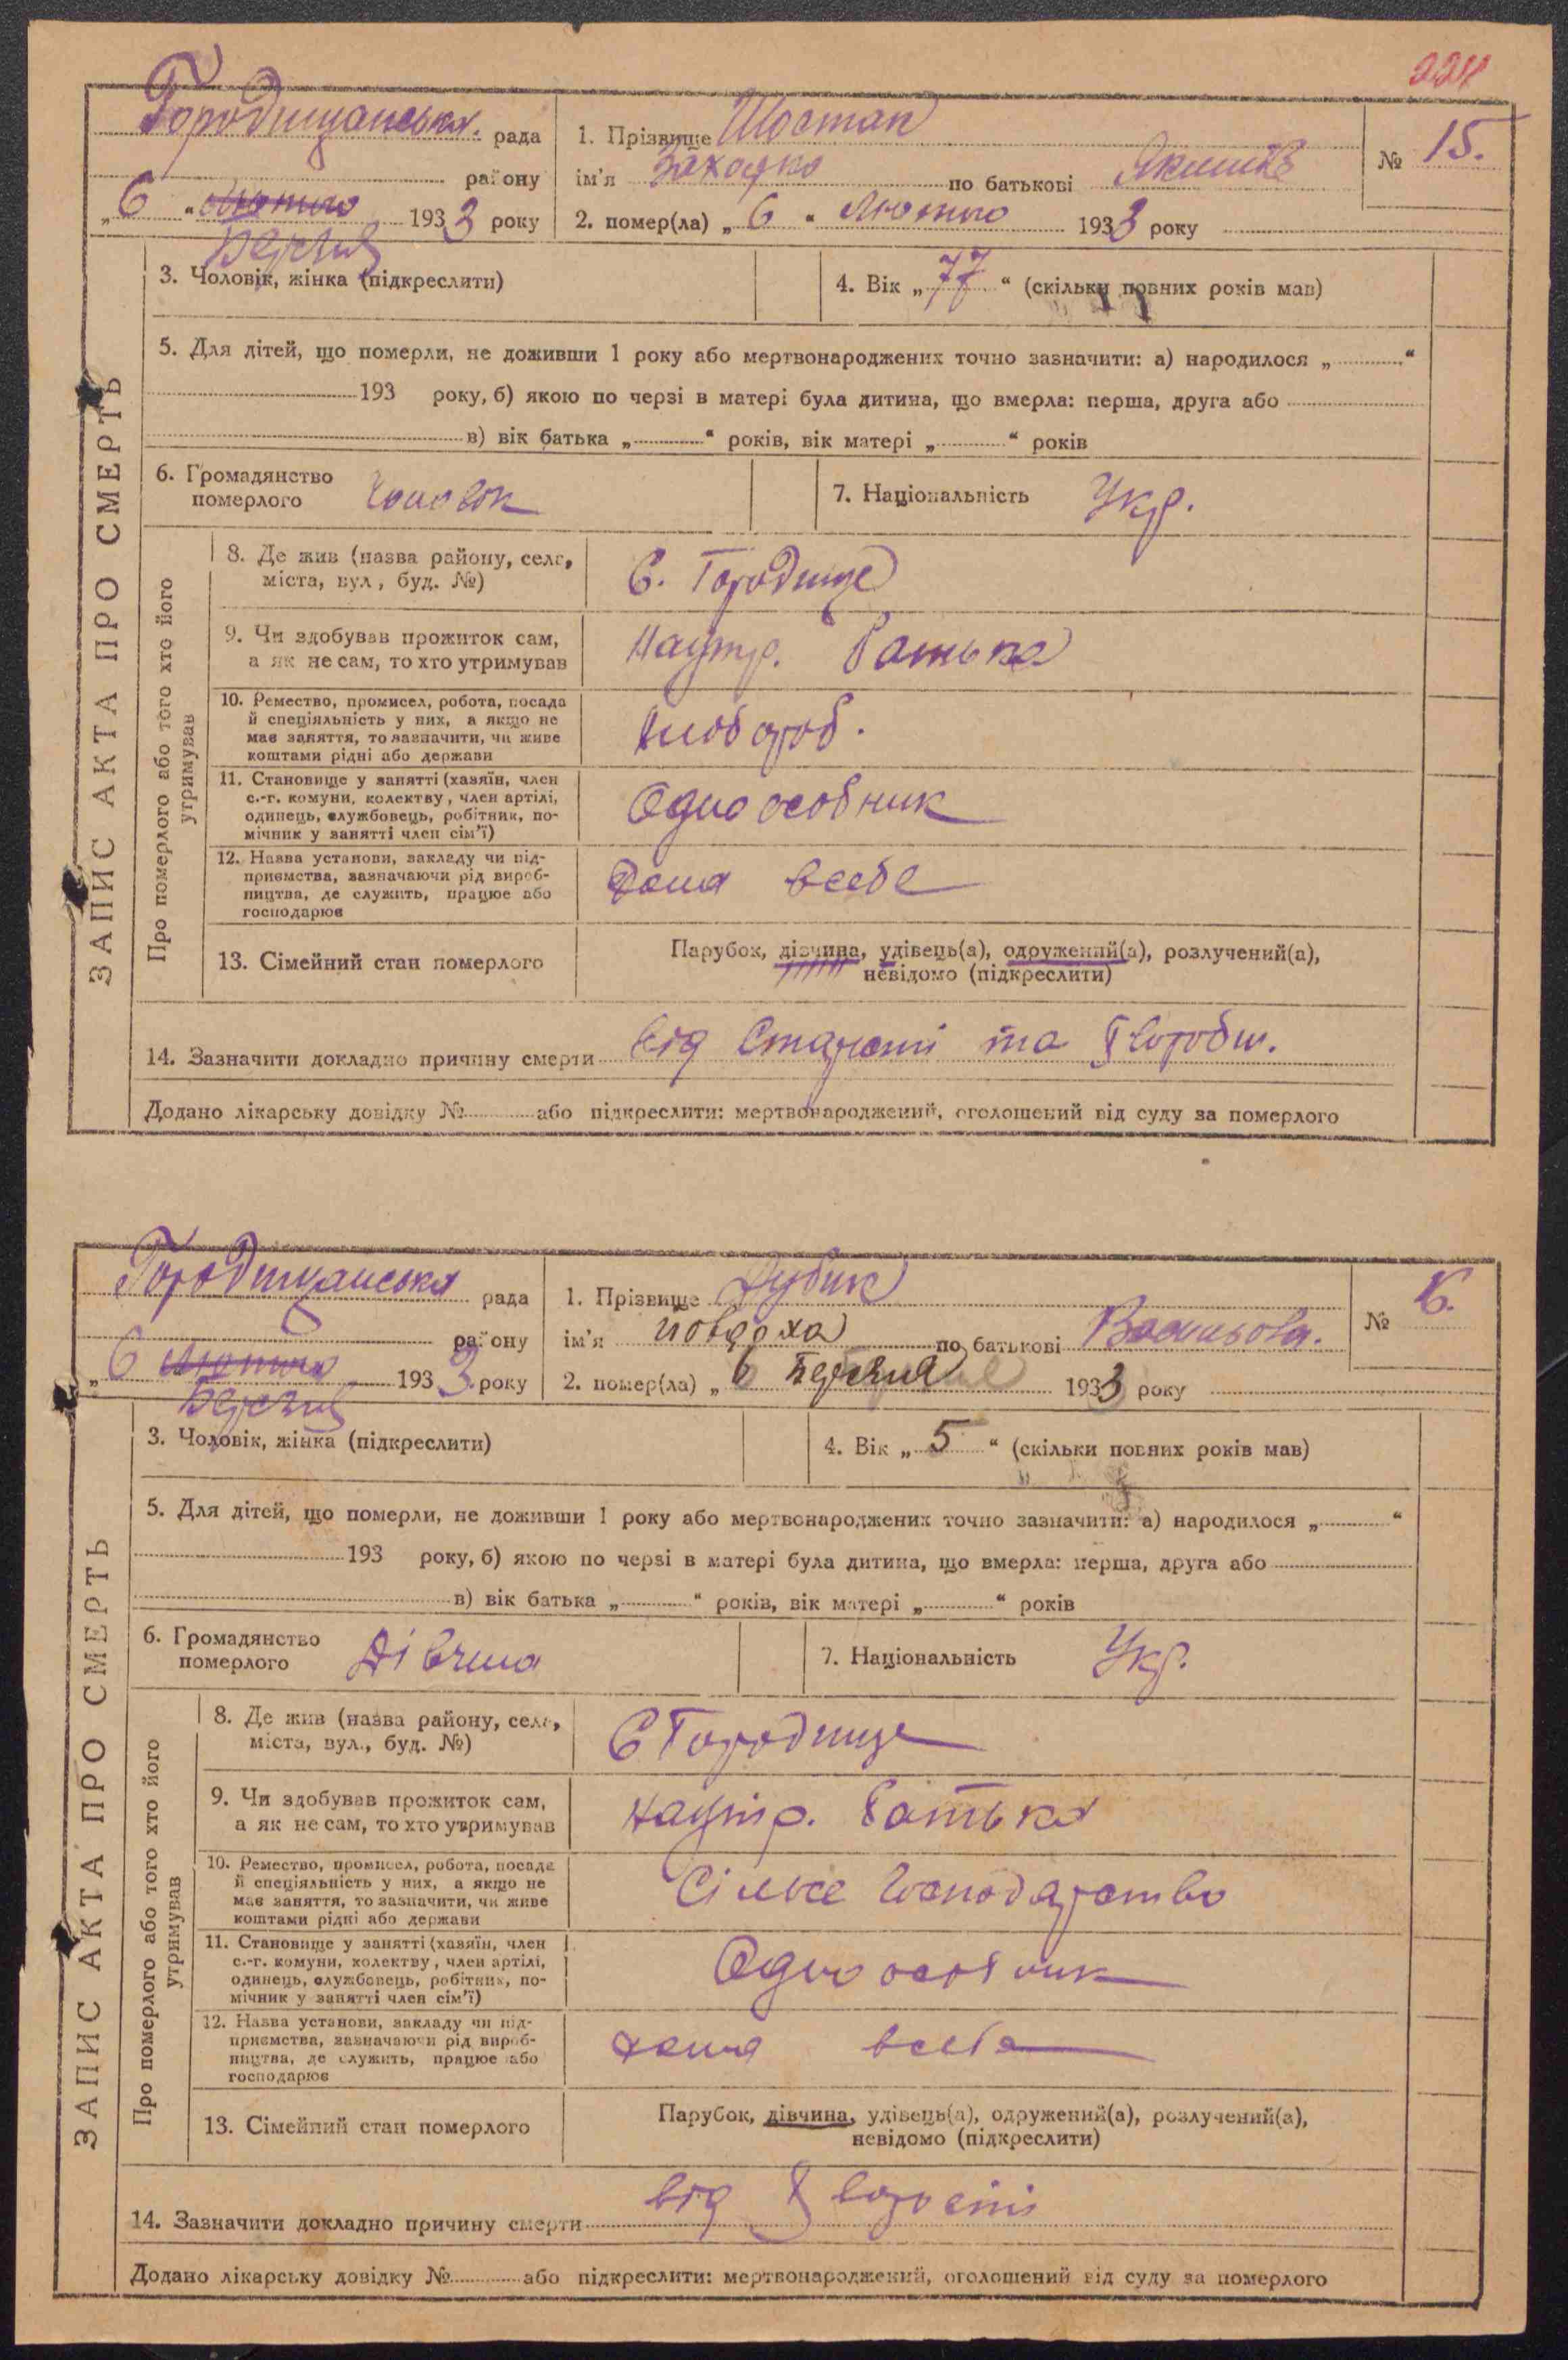 224
Городищанська рада
району
„6“ Лютого 1933 року
Березня
1. Прізвище Шостап
ім'я по батькові
2. помер(ла) „6“ Лютого 1933 року
№ 15.
3. Чоловік, жінка (підкреслити)
4. Вік „77“ (скільки повних років мав)
5. Для дітей, що померли, не доживши 1 року або мертвонароджених точно зазначити: а) народилося „ “
193 року, б) якою по черзі в матері була дитина, що вмерла: перша, друга або
в) вік батька „ “ років, вік матері „ “ років
6. Громадянство
померлого Чоловік
7. Національність Укр.
ЗАПИС АКТА ПРО СМЕРТЬ
Про померлого або того хто його
утримував
8. Де жив (назва району, села,
міста, вул., буд. №)
С. Городище
9. Чи здобував прожиток сам,
а як не сам, то хто утримував
Наутр. батька
10. Ремество, промисел, робота, посада
й спеціяльність у них, а якщо не
має заняття, то зазначити, чи живе
коштами рідні або держави
Хлібороб.
11. Становище у занятті (хазяїн, член
с.-г. комуни, колектву, член артілі,
одинець, службовець, робітник, по-
мічник у занятті член сім'ї)
Одноособник
12. Назва установи, закладу чи під-
приємства, зазначаючи рід вироб-
ництва, де служить, працює або
господарює
дома всебе
13. Сімейний стан померлого
Парубок, дівчина, удівець(а), одружений(а), розлучений(а),
невідомо (підкреслити)
14. Зазначити докладно причину смерти від Старости та
Додано лікарську довідку № або підкреслити: мертвонароджений, оголошений від суду за померлого
Городищанська рада
району
„6 Лютого 1933 року
Березня
1. Прізвище Дубик
ім'я по батькові Васильова.
2. помер(ла) „6 Березня 1933 року
№ 16.
3. Чоловік, жінка (підкреслити)
4. Вік „5“ (скільки повних років мав)
5. Для дітей, що померли, не доживши 1 року або мертвонароджених точно зазначити: а) народилося „ “
193 року, б) якою по черзі в матері була дитина, що вмерла: перша, друга або
в) вік батька „ “ років, вік матері „ “ років
6. Громадянство
померлого Дівчина
7. Національність Укр.
ЗАПИС АКТА ПРО СМЕРТЬ
Про померлого або того хто його
утримував
8. Де жив (назва району, села,
міста, вул., буд. №)
С Городище
9. Чи здобував прожиток сам,
а як не сам, то хто утримував
Наутр. батька
10. Ремество, промисел, робота, посада
й спеціяльність у них, а якщо не
має заняття, то зазначити, чи живе
коштами рідні або держави
Сільсе Господарство
11. Становище у занятті (хазяїн, член
с.-г. комуни, колектву, член артілі,
одинець, службовець, робітник, по-
мічник у занятті член сім'ї)
Одноособник
12. Назва установи, закладу чи під-
приємства, зазначаючи рід вироб-
ництва, де служить, працює або
господарює
дома всебе
13. Сімейний стан померлого
Парубок, дівчина, удівець(а), одружений(а), розлучений(а),
невідомо (підкреслити)
14. Зазначити докладно причину смерти від
Додано лікарську довідку № або підкреслити: мертвонароджений, оголошений від суду за померлого